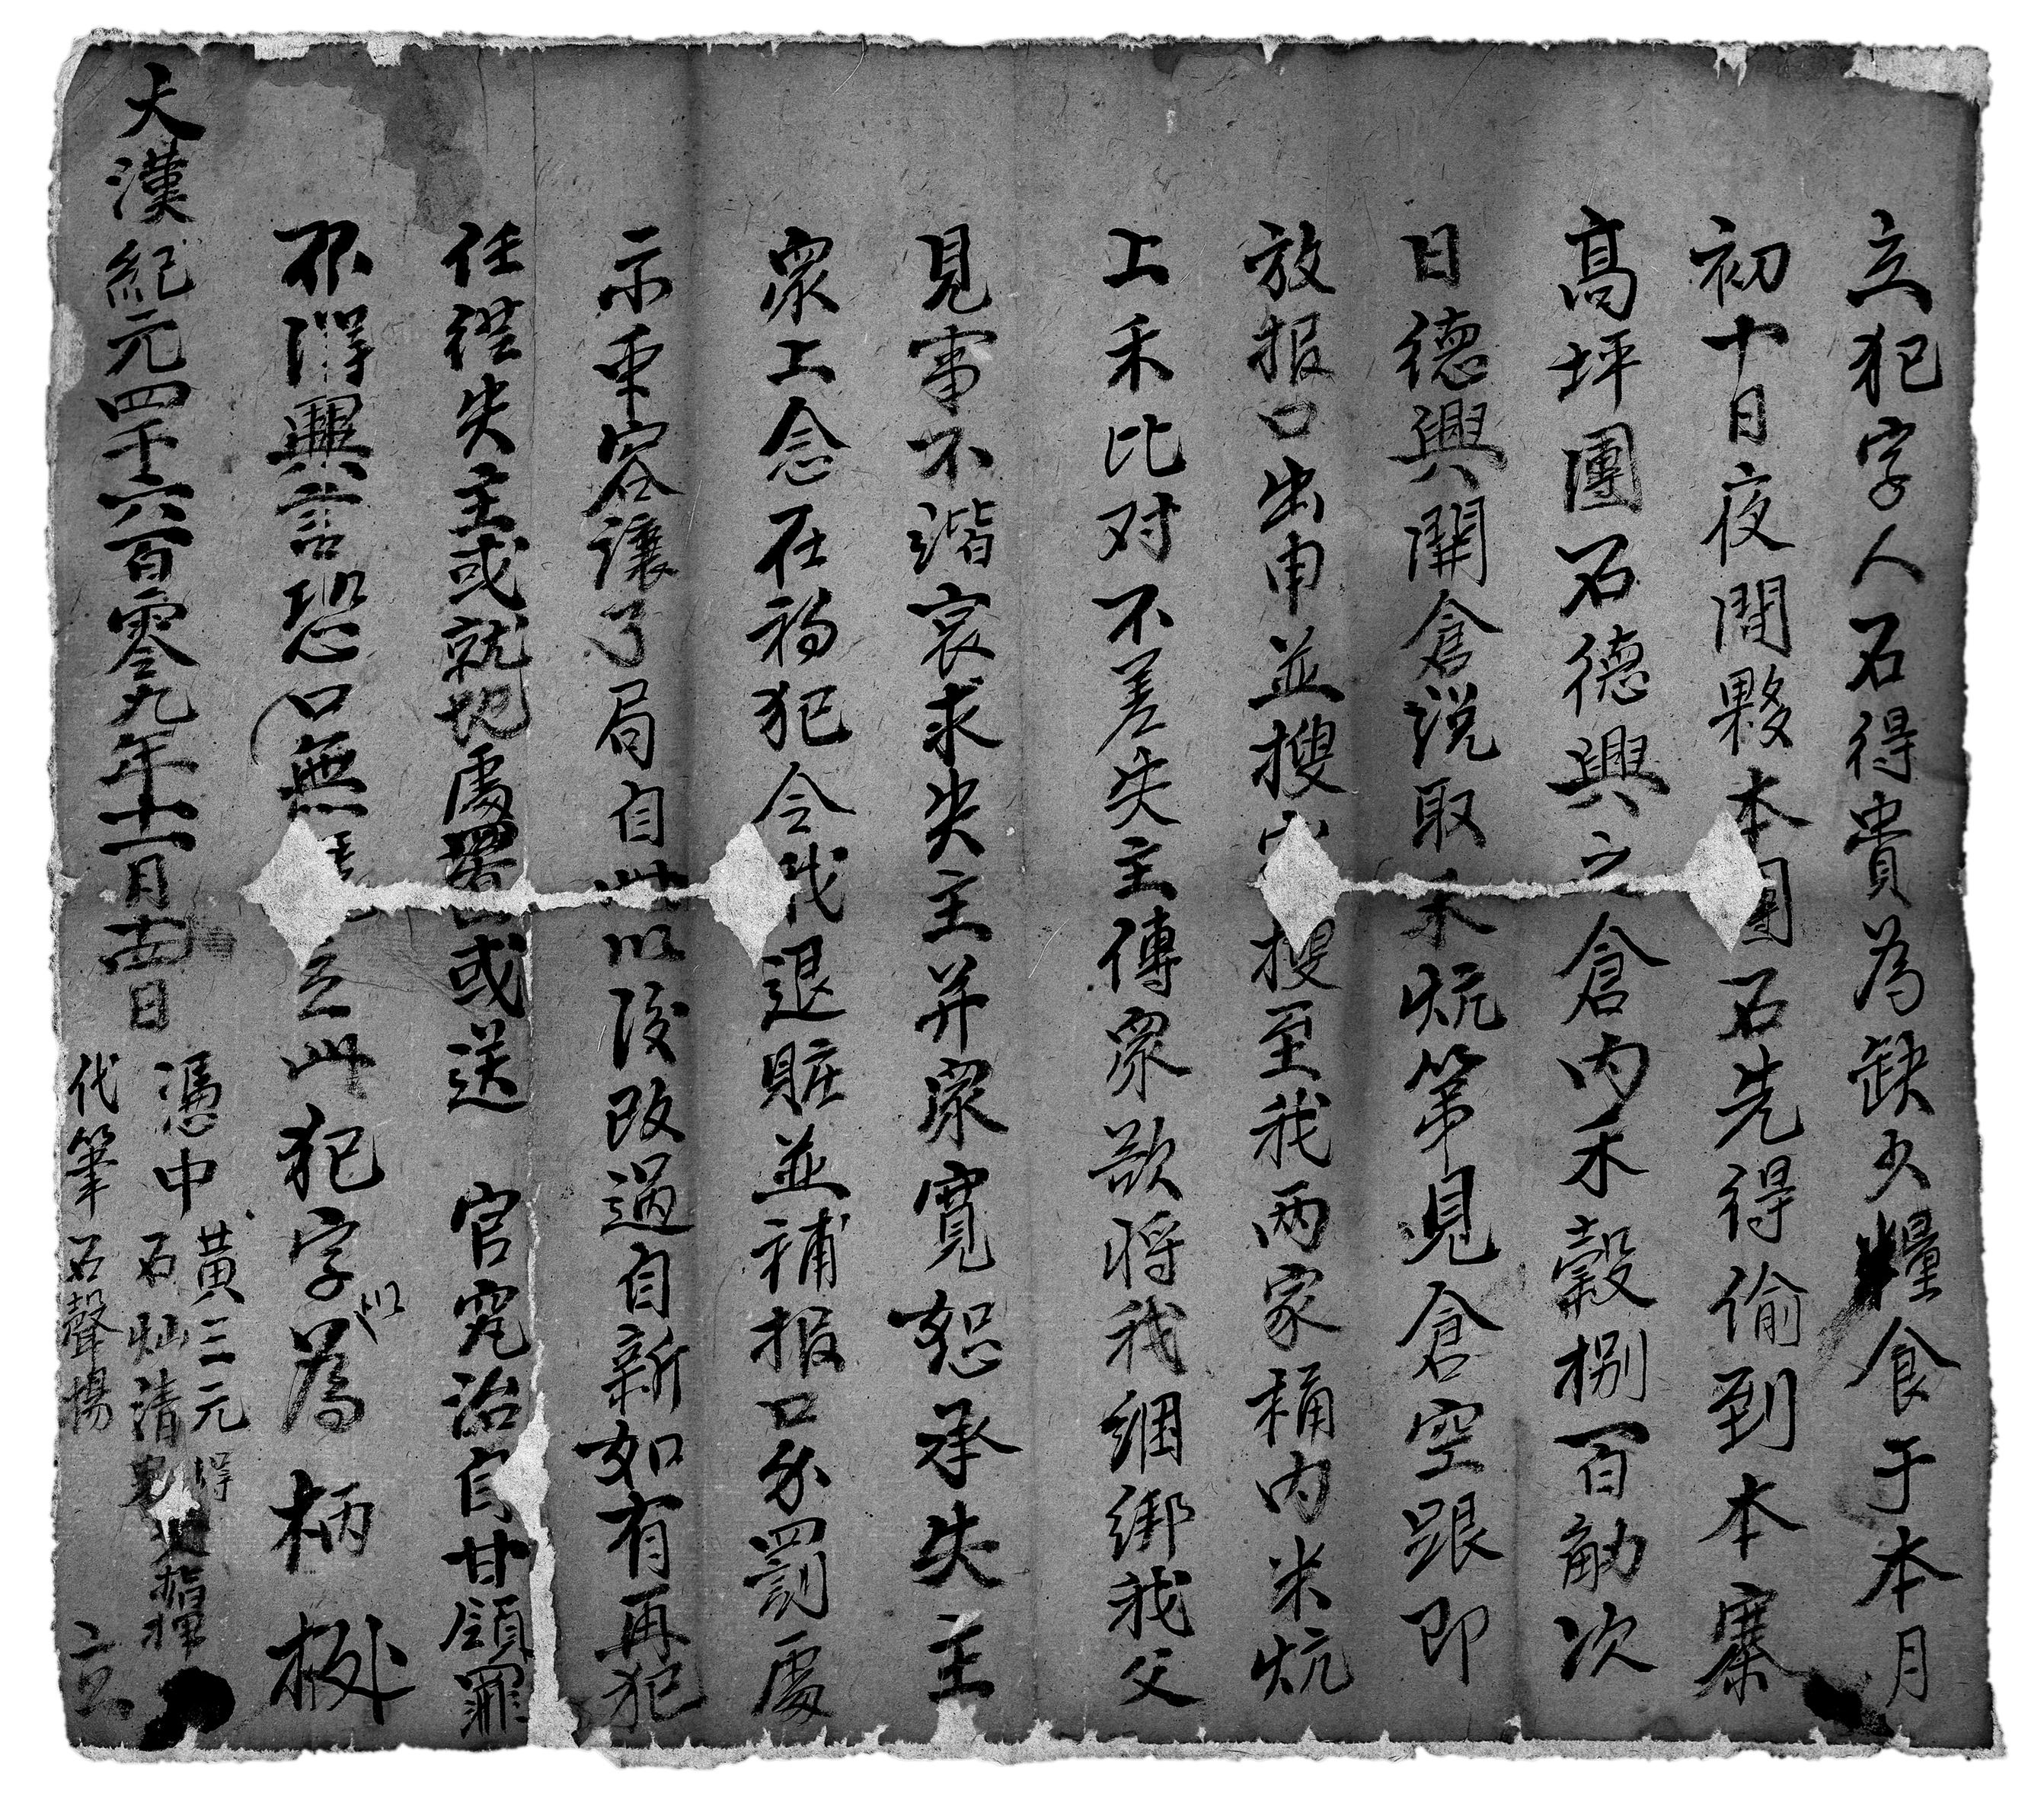 立犯字人石得貴為缺少糧食于本月
初十日夜間夥本團石先得偷到本寨
高坪團石德興之倉內禾穀捌百觔次
日德興開倉説取禾炕第見倉空跟即
放报口出申並搜搜至我两家桶内米炕
上禾比对不差失主傳眾欲將我綑綁我父
見事不諧哀求失主并眾寬恕承失主
眾上念在初犯令我退賍並補报口分罰處
示重容讓了局自此以後改過自新如有再犯
任從失主或就地處置或送 官究治自甘領罪
不得異言恐口無立此犯字以為柄㮀
大漢紀元四千六百零九年十二月十四日
憑中 黃三元 石灿清
代筆 石聲揚 立